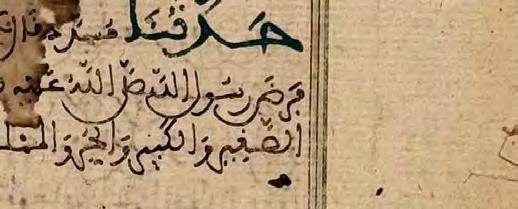 حَدَّثَنَا مُسَدَّد قَال
فَرَضَ رَسُولُ اللَّهِ صَلَّى اللَّهُ عَلَيْهِ وَ
الصَّغِيرِ وَالْكَبِيرِ وَالْحُرِّ وَالْمَمْل